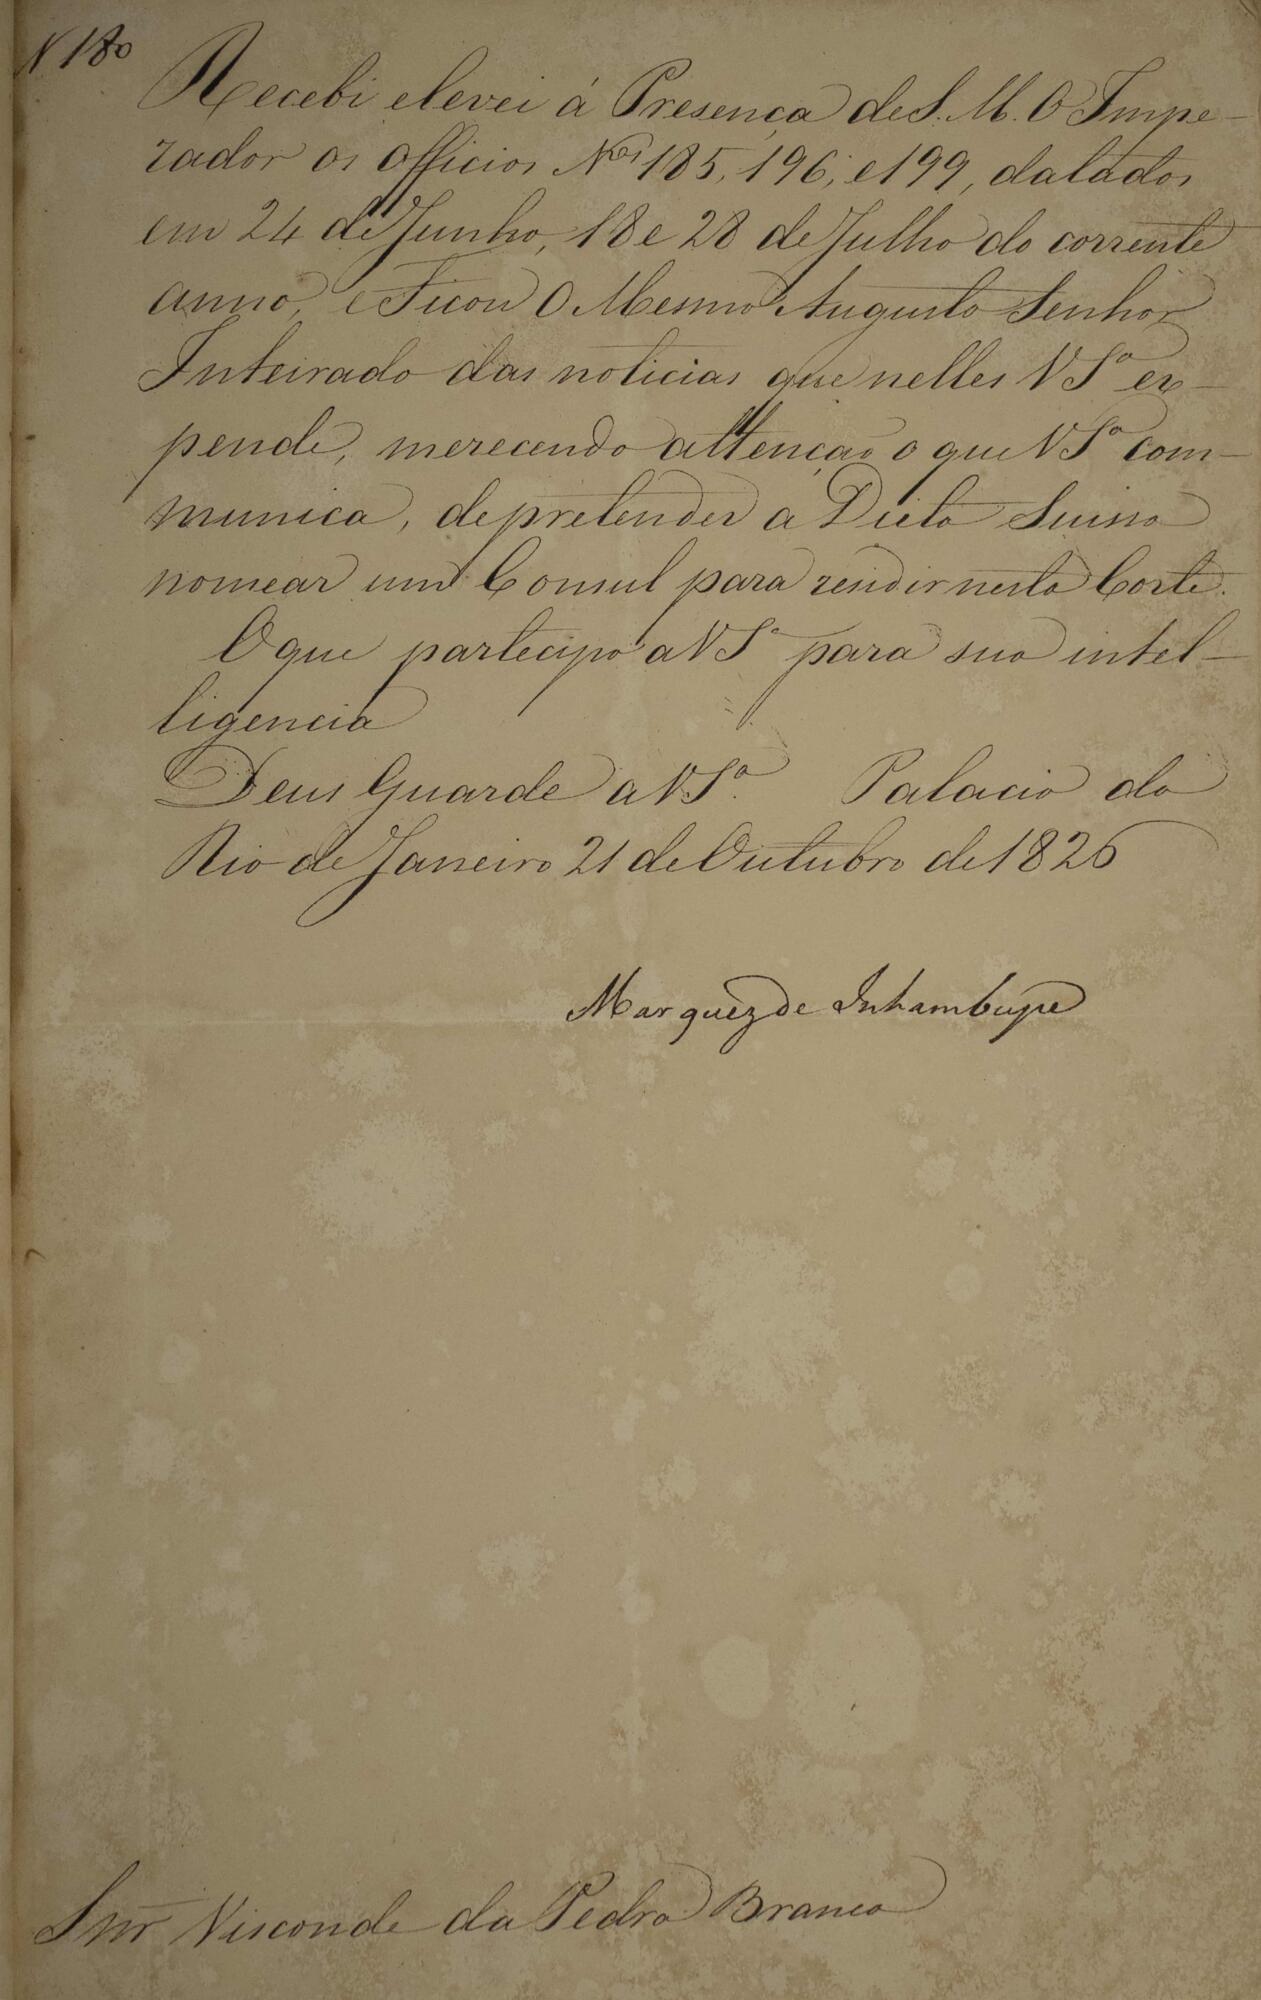 N 180
Recebi elevei á Presença de S. M. O Impe-
rador os officios Nos 185, 196, e 199, datados
em 24 de Junho, 18 e 28 de Julho do corrente
anno, e Ficou O Mesmo Augusto Senhor
Inteirado das noticias que nelles V Sa ex-
pende, merecendo attenção o que V Sa com-
munica, de pretender a Dieta Suissa
nomear um Consul para rezidir nesta Corte.
O que partecipo a V Sa para sua intel-
ligencia
Deus Guarde a V Sa. Palacio do
Rio de Janeiro 21 de Outubro de 1826
Marquez de Inhambupe
Snr Visconde da Pedra Branca